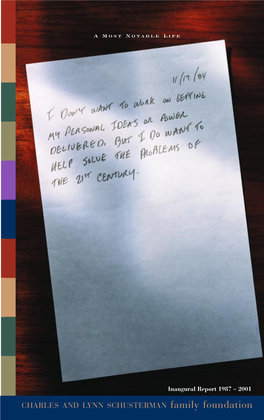 A MOST NOTABLE LIFE
11/17/84
I DON'T WANT TO WORK ON GETTING
MY PERSONAL IDEAS OR POWER
DELIVERED. BUT I DO WANT TO
HELP SOLVE THE PROBLEMS OF
THE 21ST CENTURY.
Inaugural Report 1987 – 2001
CHARLES AND LYNN SCHUSTERMAN family foundation